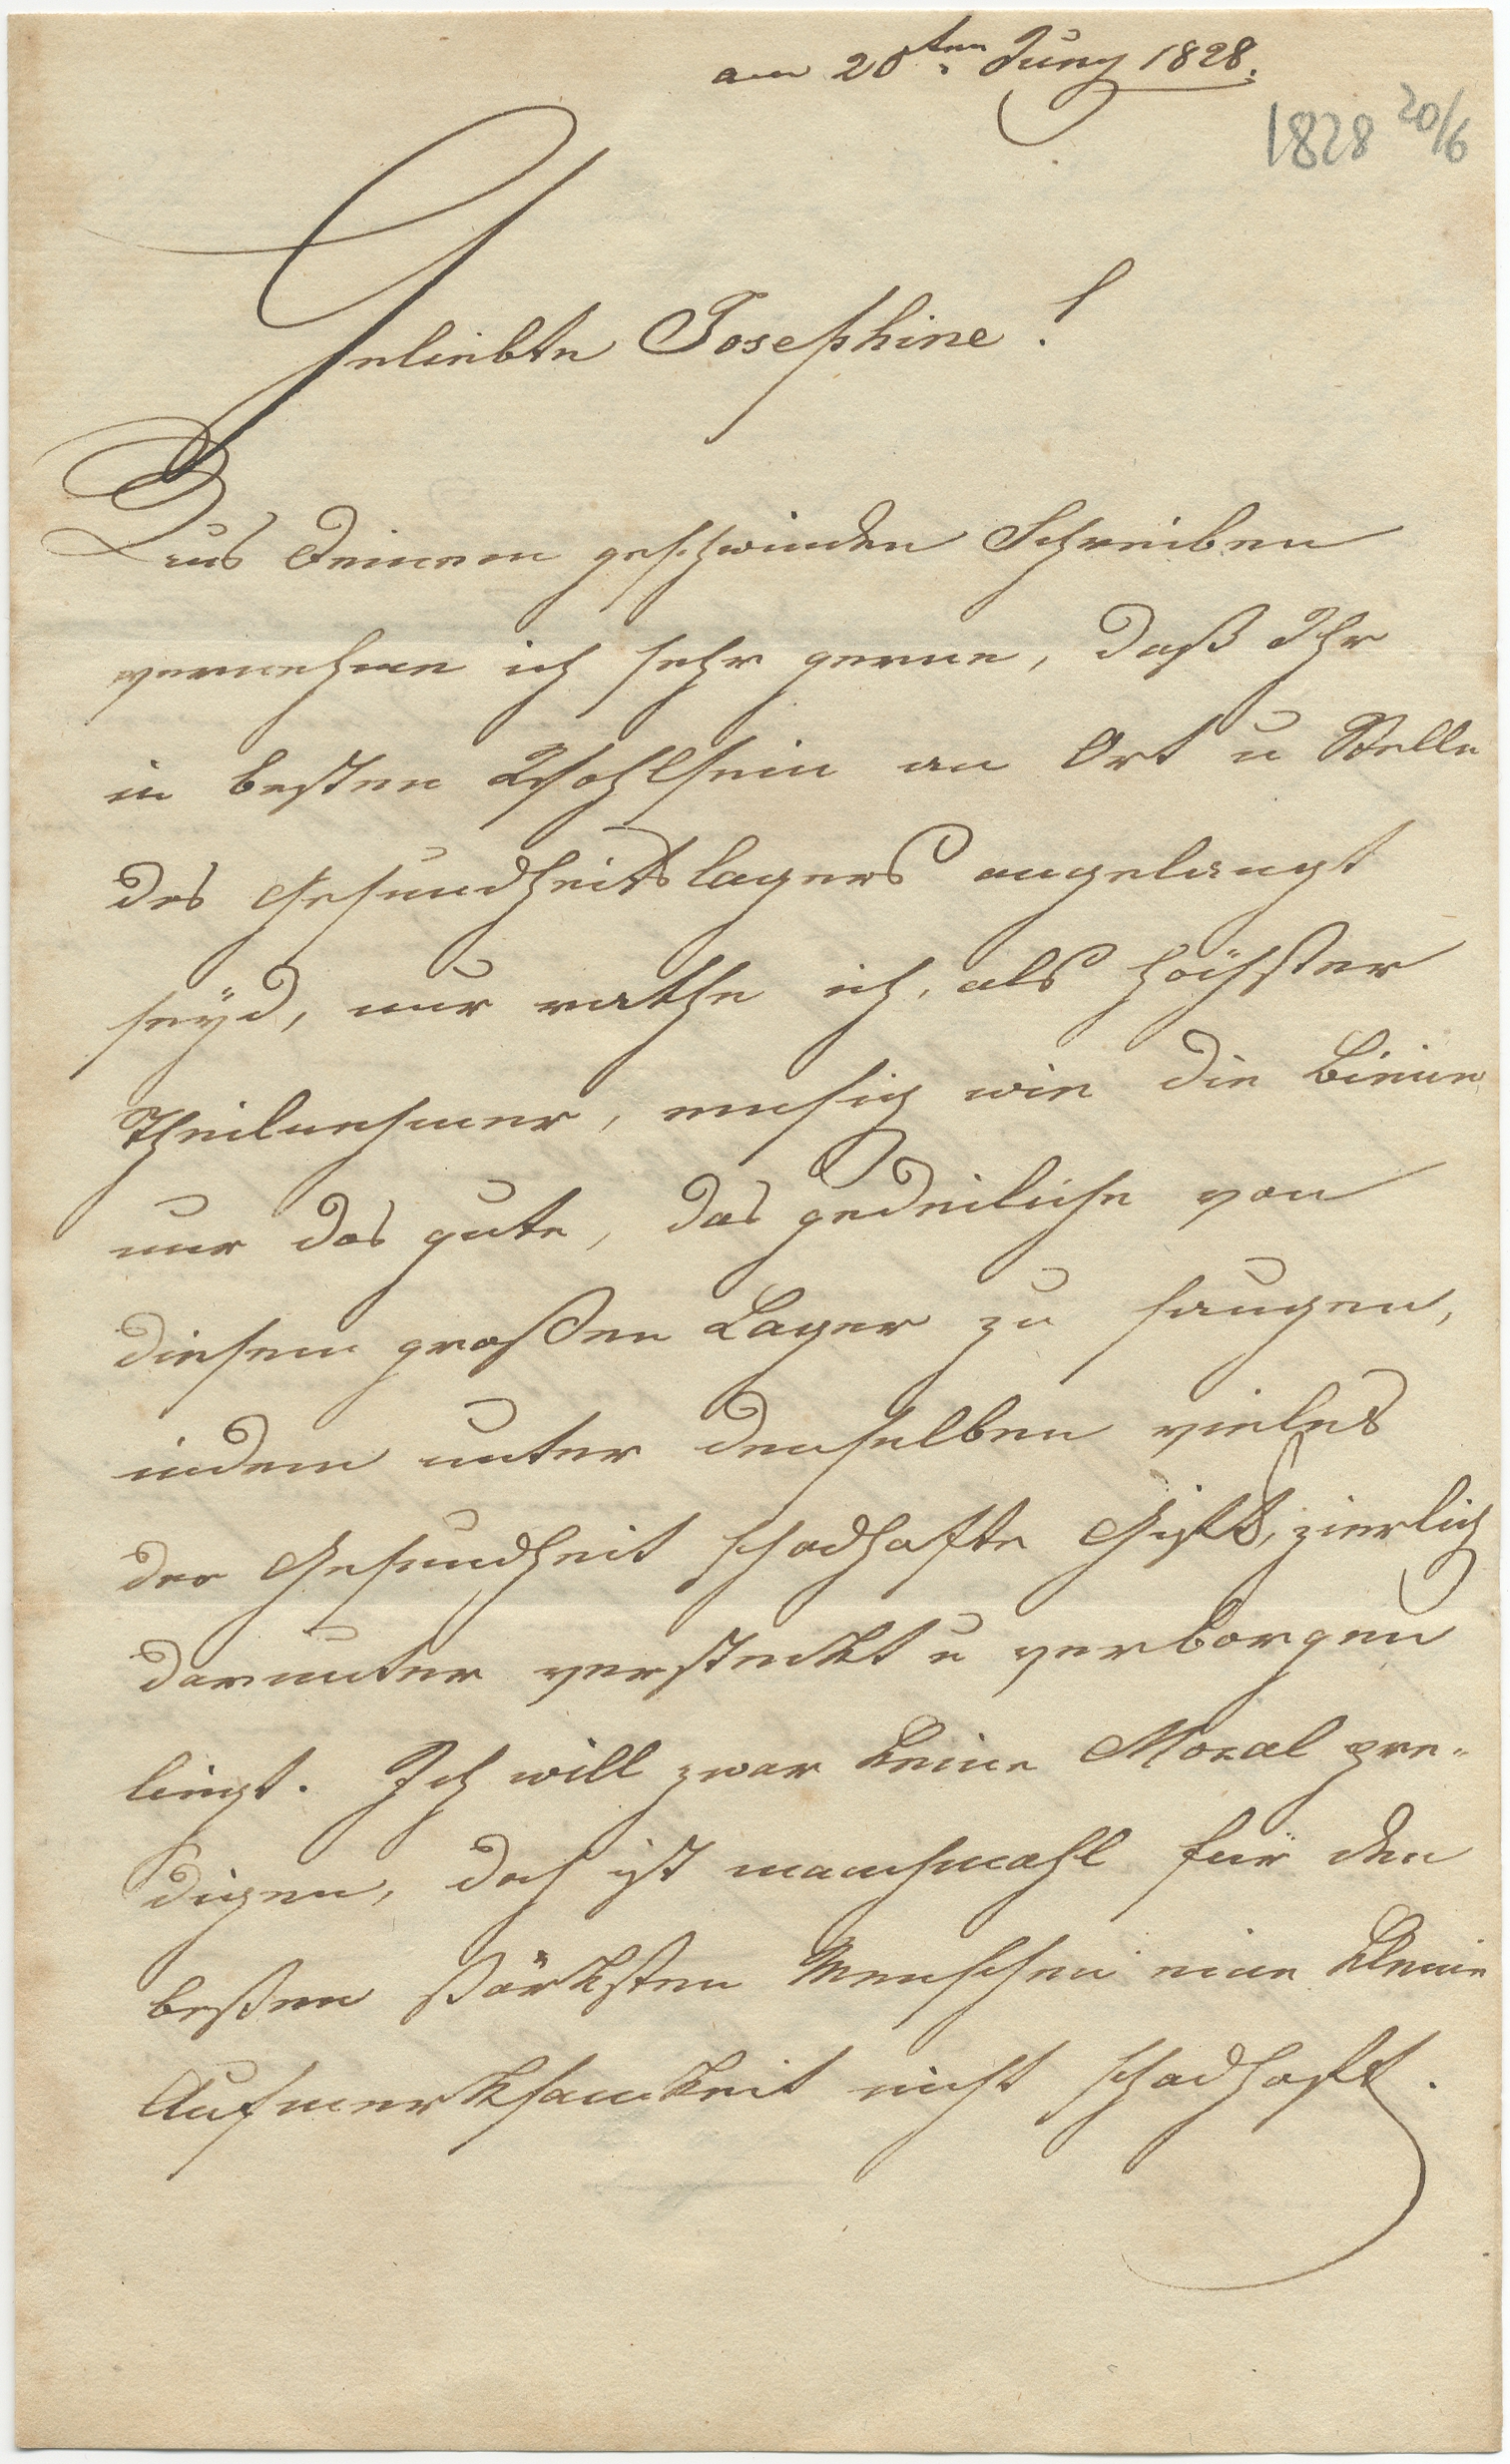 am 20ten Juny 1828.
1828 20/6
Geliebte Josephine!
Aus Deinem geschwinden Schreiben
vernehme ich sehr gerne, daß Ihr
in besten Wohlsein an Ort u Stelle
des Gesundheitslagers angelangt
seÿd, nur rathe ich, als höchster
Theilnehmer, emsig wie die Biene
nur das gute, das gedeiliche von
diesem großen Lager zu saugen,
indem unter demselben vieles
der Gesundheit schadhafte Gift, zierlich
darunter versteckt u verborgen
liegt. Ich will zwar keine Moral pre-
digen, doch ist manchmahl für den
beßen stärksten Menschen eine kleine
Aufmerksamkeit nicht schadhaft.